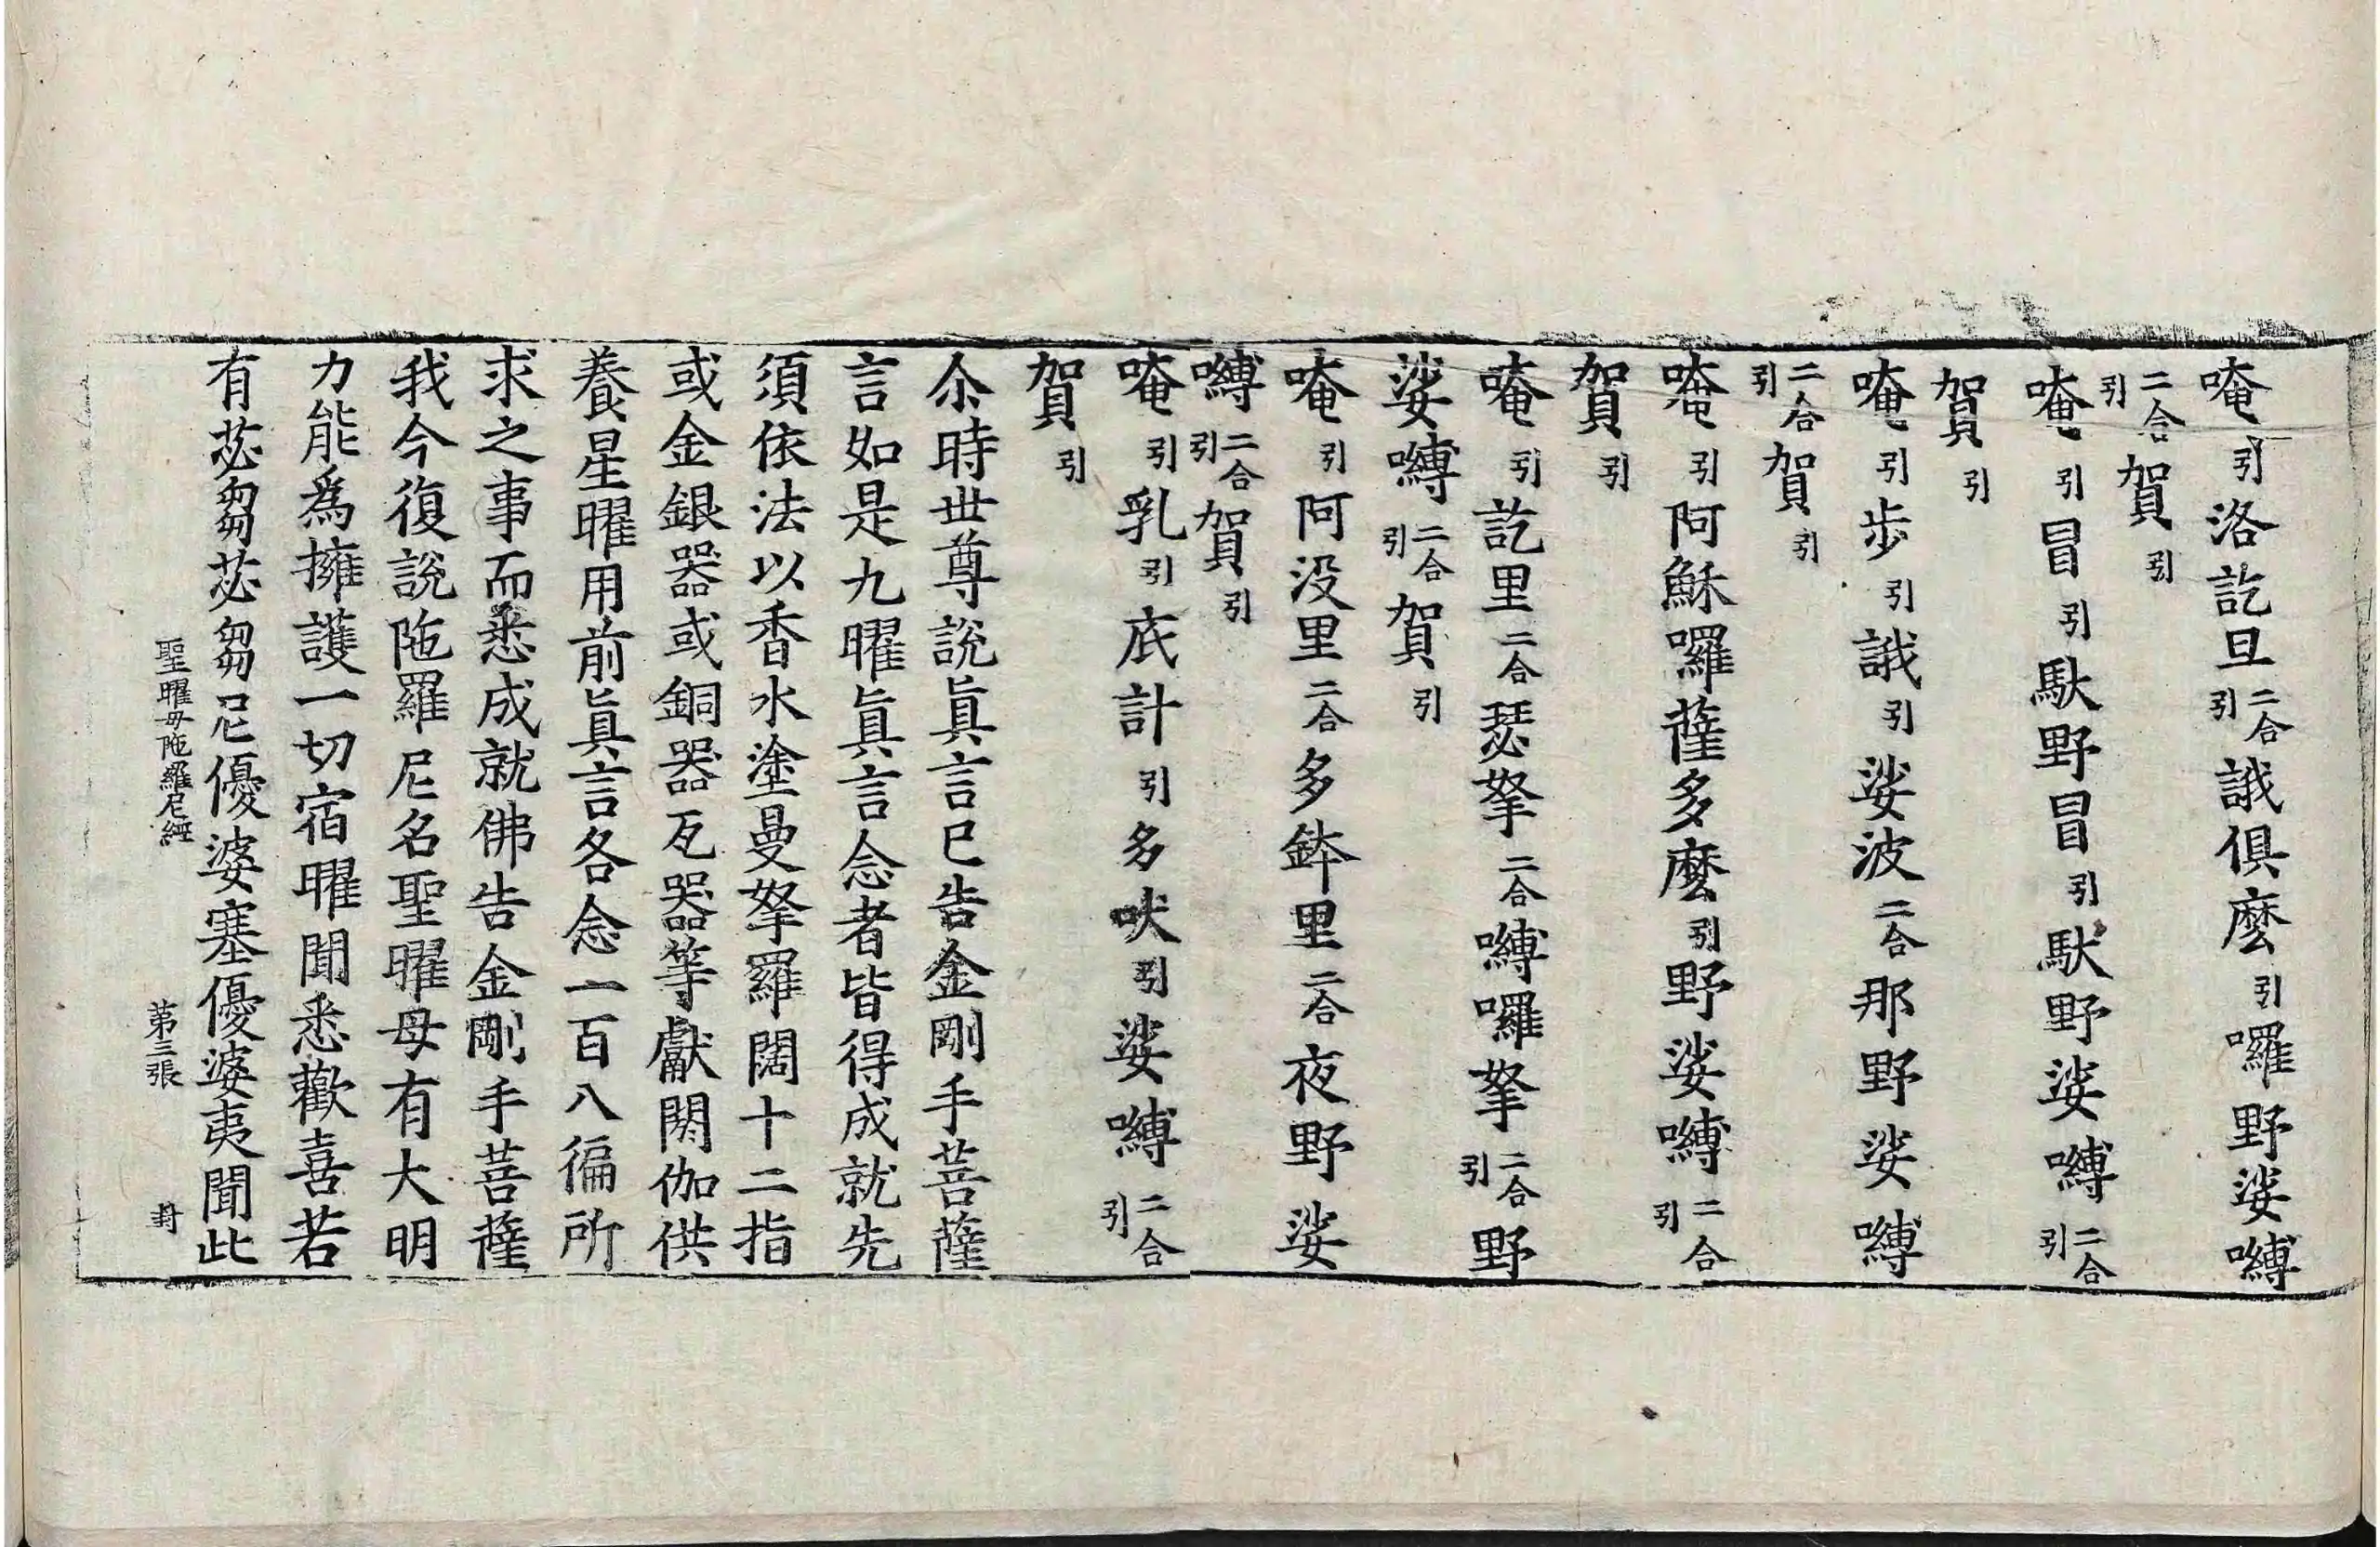 唵引洛訖旦二合引誐俱麼引囉野娑嚩
二合引賀引
唵引冒引馱野冒引馱野娑嚩二合引
賀引
唵引步引誐引娑波二合那野娑嚩
二合引賀引
唵引阿穌囉薩多麼引野娑嚩二合引
賀引
唵引訖里二合瑟拏二合嚩囉拏二合引野
娑嚩二合引賀引
唵引阿没里二合多鉢里二合夜野娑
嚩二合引賀引
唵引乳引底計引多吠引娑嚩二合引
賀引
尒時世尊說眞言已告金剛手菩薩
言如是九曜眞言念者皆得成就先
須依法以香水塗曼拏羅闊十二指
或金銀器或銅器瓦器等獻閼伽供
養星曜用前眞言各念一百八徧所
求之事而悉成就佛告金剛手菩薩
我今復說陁羅尼名聖曜母有大明
力能爲擁護一切宿曜聞悉歡喜若
有苾芻苾芻尼優婆塞優婆夷聞此
聖曜母陁羅尼經 第三張 封